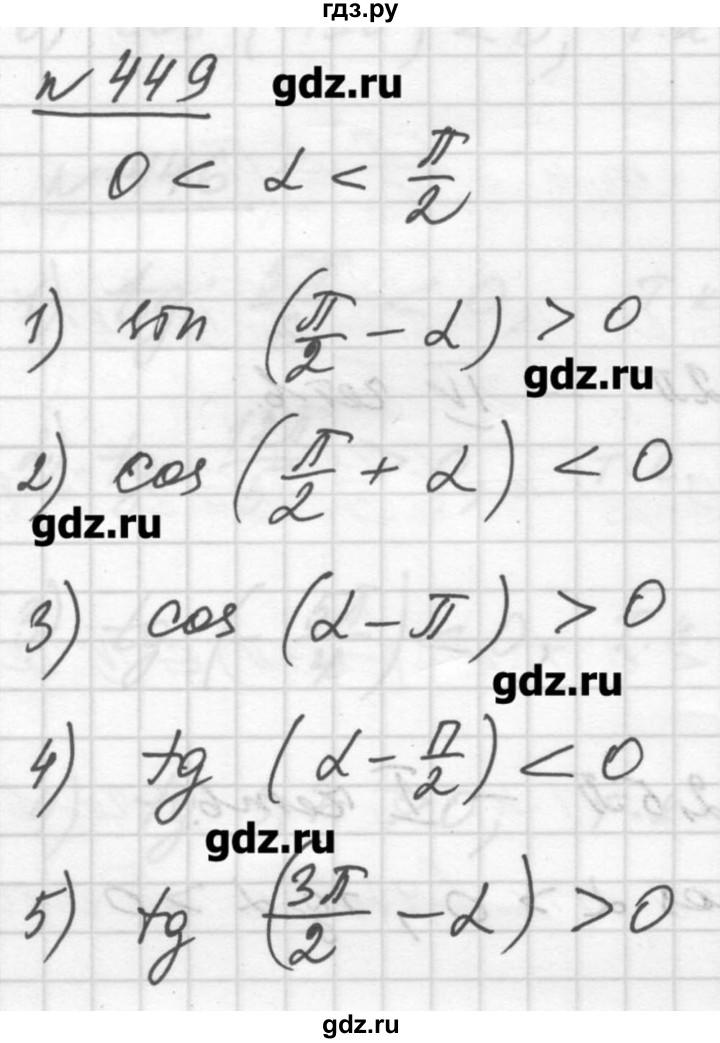 гдз.ру
№ 449 gdz.ru
0 < α < π/2
1) sin (π/2 - α) > 0
gdz.ru
2) cos (π/2 + α) < 0
gdz.ru
3) cos (α - π) > 0
gdz.ru
4) tg (α - π/2) < 0
gdz.ru
5) tg (3π/2 - α) > 0
gdz.ru